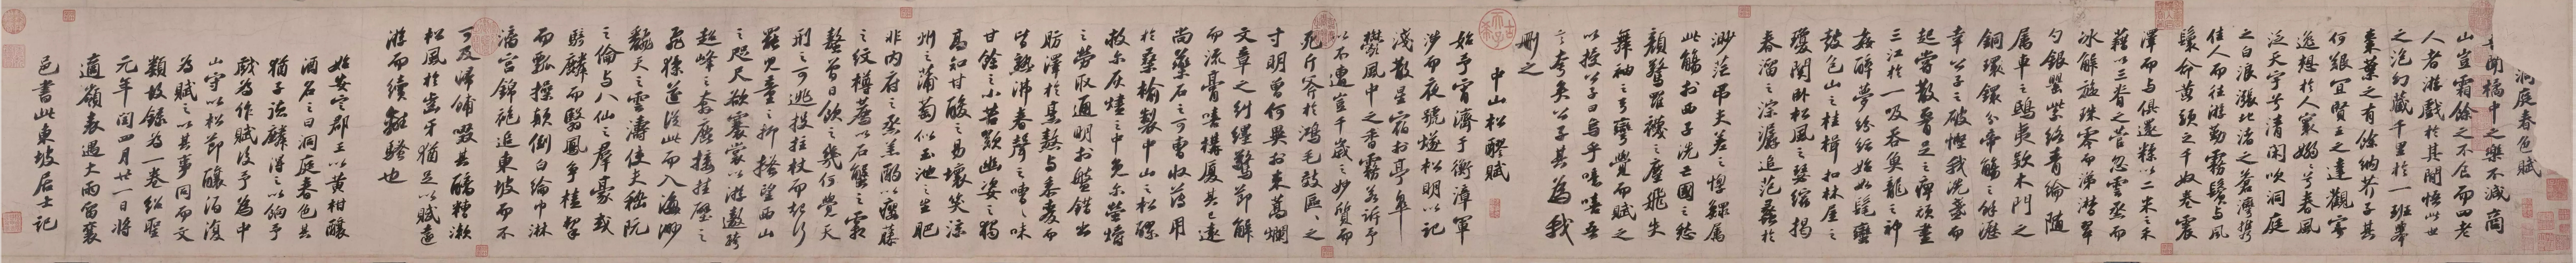 洞庭春色賦
吾聞橘中之樂不減商
山豈霜餘之不食而四老
人者游戲於其間悟此世
之泡幻藏千里於一班舉
棗葉之有餘納芥子其
何艱宜賢王之達觀寄
逸想於人寰嫋兮春風
泛天宇兮清閑吹洞庭
之白浪漲北渚之蒼灣攜
佳人而往游勤霧鬢與風
鬟命黃頭之千奴卷震
澤而與俱還糅以二米之禾
藉以三脊之菅忽雲烝而
冰解旋珠零而涕潸翠
勺銀罌紫絡青綸隨
屬車之鴟夷款木門之
銅鐶分帝觴之餘瀝
幸公子之破慳我洗盞而
起嘗散腰足之痺頑盡
三江於一吸吞魚龍之神
姦醉夢紛紜始如髦蠻
鼓包山之桂楫扣林屋之
瓊關臥松風之瑟縮揭
春溜之淙潺追范蠡於
渺茫弔夫差之惸鰥屬
此觴於西子洗亡國之愁
顏驚羅襪之塵飛失
舞袖之弓彎覺而賦之
以授公子曰烏乎噫嘻吾
言夸矣公子其為我
刪之
中山松醪賦
始予宵濟于衡漳軍
涉而夜號燧松明以記
淺散星宿於亭皋
鬱風中之香霧若訴予
以不遭豈千歲之妙質而
死斤斧於鴻毛效區區之
寸明曾何異於束蒿爛
文章之糾纆驚節解
而流膏嘻構廈其已遠
尚藥石之可曹收薄用
於桑榆製中山之松醪
救爾灰燼之中免爾螢爝
之勞取通明於盤錯出
肪澤於烹熬與黍麥而
皆熟沸舂聲之嘈嘈味
甘餘之小苦歎幽姿之獨
高知甘酸之易壞笑涼
州之蒲萄似玉池之生肥
非內府之烝羔酌以癭藤
之紋樽薦以石蟹之霜
螯曾日飲之幾何覺天
刑之可逃投拄杖而起行
罷兒童之抑搔望西山
之咫尺欲褰裳以游遨跨
超峰之奔鹿接挂壁之
飛猱遂從此而入海渺
翻天之雲濤使夫嵇阮
之倫與八仙之群豪或
騎麟而翳鳳爭榼挈
而瓢操顛倒白綸巾淋
漓宮錦袍追東坡而不
可及歸餔歠其醨糟漱
松風於齒牙猶足以賦遠
游而續離騷也
始安定郡王以黃柑釀
酒名之曰洞庭春色其
猶子德麟得之以餉予
戲為作賦後予為中
山守以松節釀酒復
為賦之以其事同而文
類故錄為一卷紹聖
元年閏四月廿一日將
適嶺表遇大雨留襄
邑書此東坡居士記